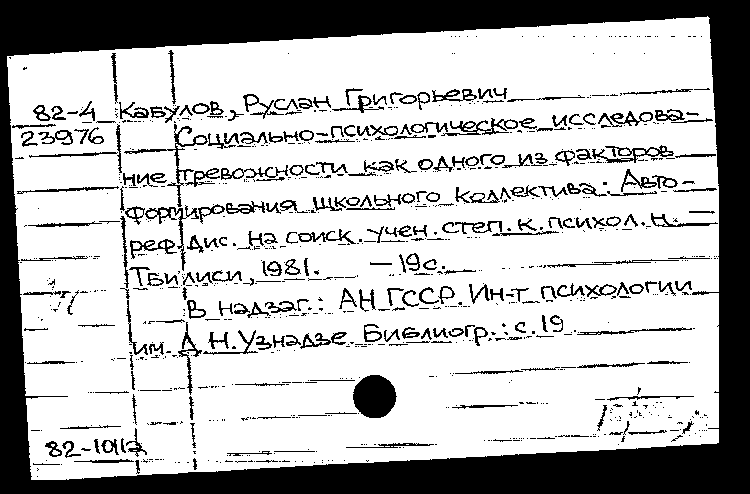 82-4 Кабулов, Руслан Григорьевич
23976 Социально-психологическое исследова-
ние тревожности как одного из факторов
формирования школьного коллектива: Авто-
реф. дис. на соиск. учен. степ. к. психол. н. —
Тбилиси, 1981. — 19с.
В надзаг.: АН ГССР. Ин-т психологии
им Д Н. Узнадзе Библиогр.: с. 19